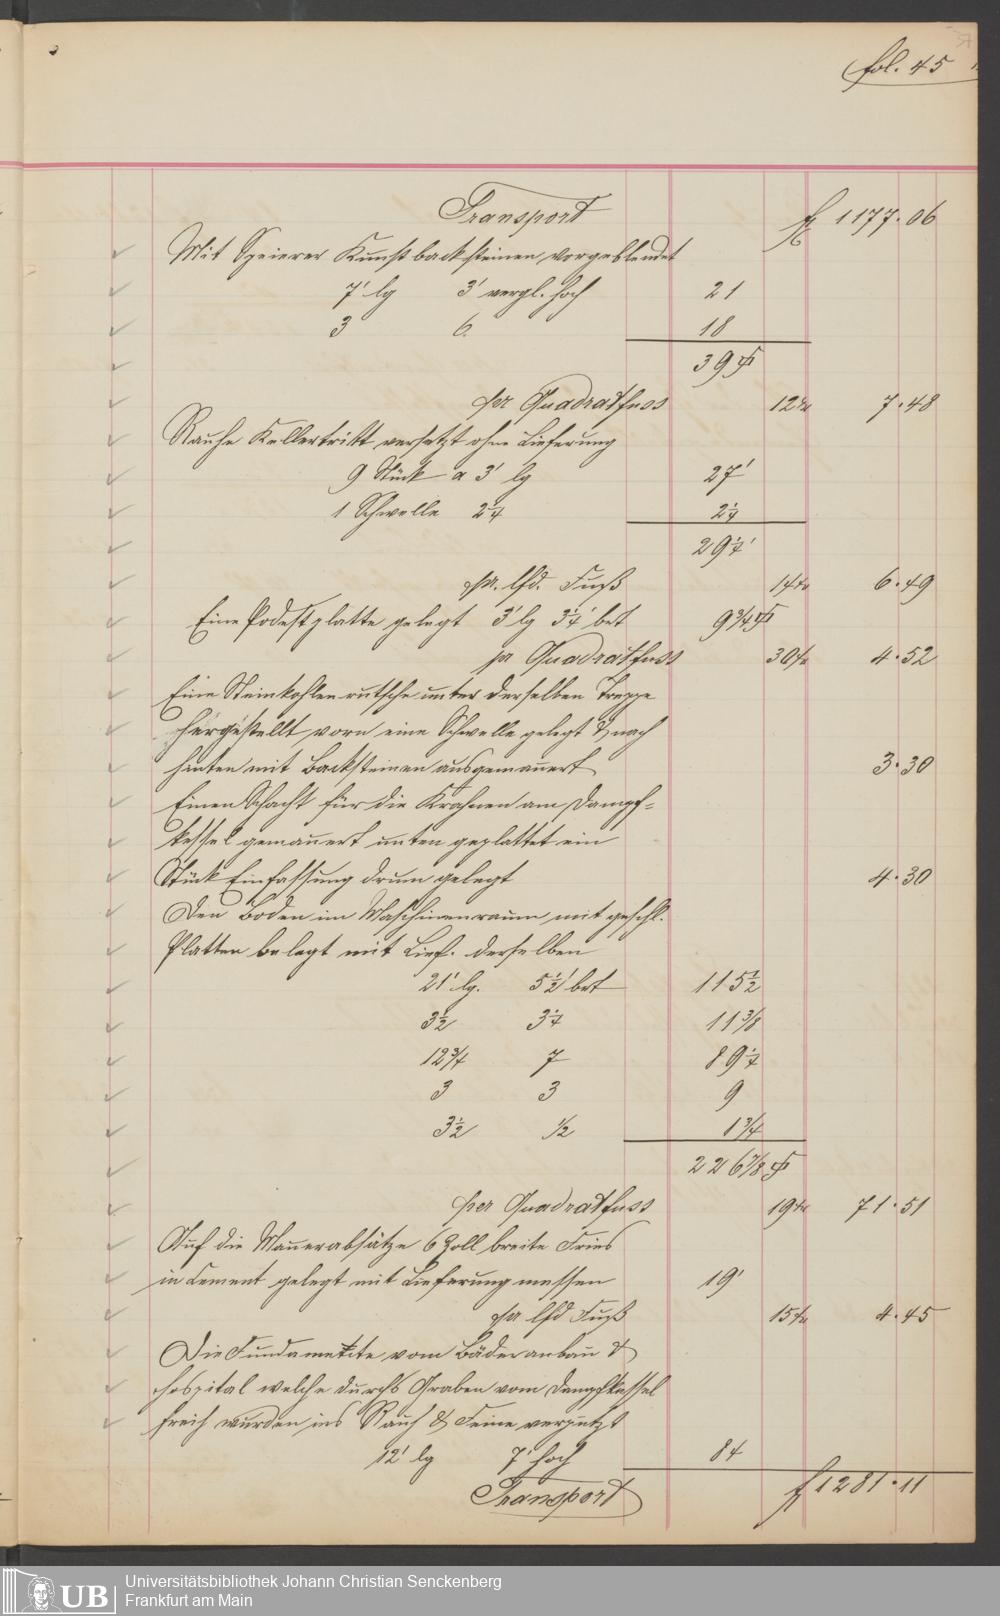 fol. 45
Transport f 1177.06
Mit Speierer Kunstbacksteinen vorgeblendet
7' lg 3' vergl. hoch 21
3 6. 18
39
per Quadratfuss 12 kr 7.48
Rauhe Kellertritt versetzt ohne Lieferung
9 Stück a 3' lg 27'
1 Schwelle 2¼ 2¼
29¼'
pr. lfd. Fuß 14 kr 6.49
Eine Podestplatte gelegt 3' lg 3¼' bet 9¾
pr Quadratfuss 30 kr 4.52
Eine Steinkohlenrutsche unter derselben Treppe
hergestellt, vorn eine Schwelle gelegt & nach
hinten mit Backsteinen ausgemauert 3.30
Einen Schacht für die Krahnen am Dampf-
kessel gemauert unten geplattet ein
Stück Einfassung drum gelegt 4.30
Den Boden im Maschinenraum, mit geschl.
Platten belegt mit Lief. derselben
21' lg. 5½' bet 115½
3½ 3¼ 11⅜
12¾ 7 89¼
3 3 9
3½ ½ 1¾
226⅞
per Quadratfuss 19 kr 71.51
Auf die Mauerabsätze 6 Zoll breite Fries
in Cement gelegt mit Lieferung messen 19'
pr lfd Fuß 15 kr 4.45
Die Fundamente vom Bäderanbau &
Hospital welche durchs Graben vom Dampfkessel
freih wurden ins Rauh & Feine verputzt
12' lg 7' hoch 84
Transport f 1281.11
UB
Universitätsbibliothek Johann Christian Senckenberg
Frankfurt am Main